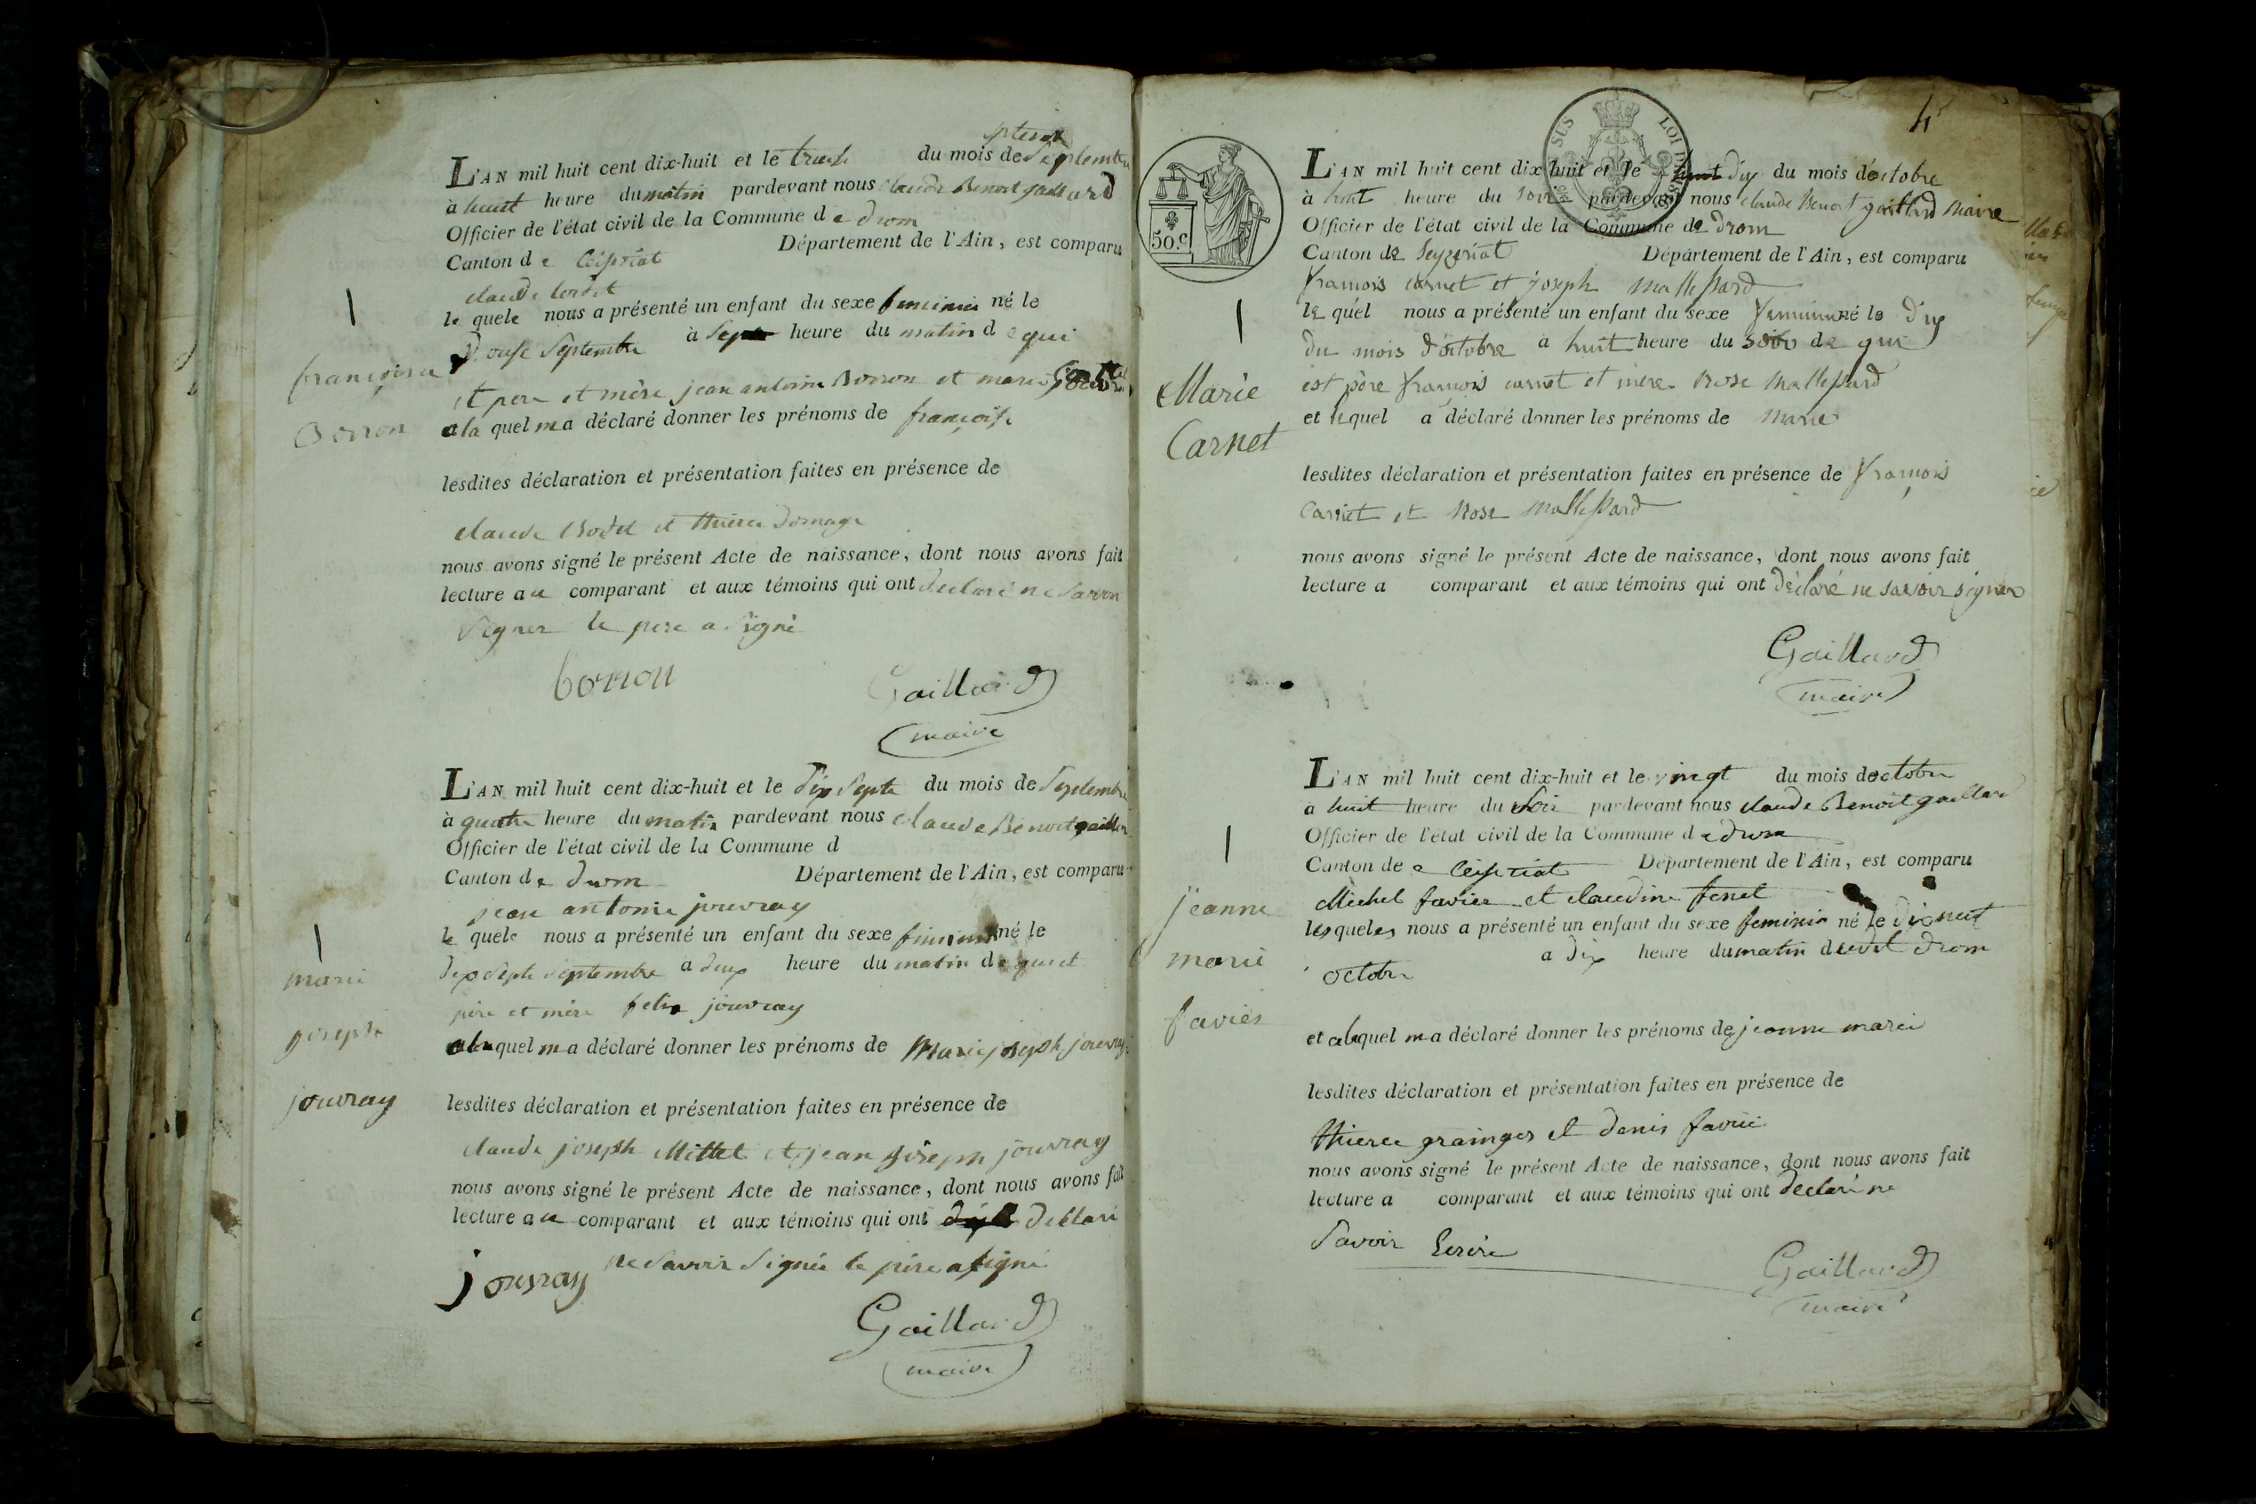 L'AN mil huit cent dix-huit et le treize du mois de Septembre
à huit heure du matin pardevant nous Claude Benoit gaillard
Officier de l'état civil de la Commune de drom
Canton de Ceiseriat Département de l'Ain, est comparu
claude
le quele nous a présenté un enfant du sexe feminin né le
Douse Septembre à Sept heure du matin de qui
et pere et mère jean antoine Borron et marie
a la quel m a déclaré donner les prénoms de françoise
lesdites déclaration et présentation faites en présence de
claude Bodet et thierce Domage
nous avons signé le présent Acte de naissance, dont nous avons fait
lecture au comparant et aux témoins qui ont declaré ne Savoir
Signer le pere a Signé
borron
Gaillard
maire
françoise
Borron
L'AN mil huit cent dix-huit et le Dix Septe du mois de Septembre
à quatre heure du matin pardevant nous Claude Benoit gaillar
Officier de l'état civil de la Commune d
Canton de Drom Département de l'Ain, est comparu
jean antonie jouvray
le quele nous a présenté un enfant du sexe feminin né le
Dix Septe Septembre a deux heure du matin de qui et
père et mère felix jouvray
a la quel m a déclaré donner les prénoms de Marie joseph jouvray
lesdites déclaration et présentation faites en présence de
claude joseph Mittet et jean joseph jouvray
nous avons signé le présent Acte de naissance, dont nous avons fait
lecture au comparant et aux témoins qui ont declaré
ne Savoir Signée le père a Signé
jouvray
Gaillard
maire
marie
joseph
jouvray
4
SUS LOI DE 1816
50.c
L'AN mil huit cent dix-huit et le huit dix du mois d'octobre
à huit heure du soir pardevant nous claude Benoit gaillard Maire
Officier de l'état civil de la Commune de drom
Canton de Seyzeriat Département de l'Ain, est comparu
françois carnet et joseph Mallessard
le quel nous a présenté un enfant du sexe feminin né le dix
du mois d'octobre a huit heure du soir de qui
est père françois carnet et mère Rose Mallessard
et lequel a déclaré donner les prénoms de Marie
lesdites déclaration et présentation faites en présence de françois
Carnet et Rose Mallessard
nous avons signé le présent Acte de naissance, dont nous avons fait
lecture a comparant et aux témoins qui ont déclaré ne savoir signer
Gaillard
maire
Marie
Carnet
L'AN mil huit cent dix-huit et le vingt du mois doctobre
a huit heure du Soir pardevant nous claude Benoit gaillard
Officier de l'état civil de la Commune de drom
Canton de Ceiseriat Département de l'Ain, est comparu
Michel favier et claudine fenet
lesqueles nous a présenté un enfant du sexe feminin né le dixneuf
octobre a dix heure du matin dudit Drom
et a laquel m a déclaré donner les prénoms de jeanne marie
lesdites déclaration et présentation faites en présence de
thierce grainger et denis favié
nous avons signé le présent Acte de naissance, dont nous avons fait
lecture a comparant et aux témoins qui ont declaré ne
Savoir Ecrire
Gaillard
maire
jeanne
marie
favier